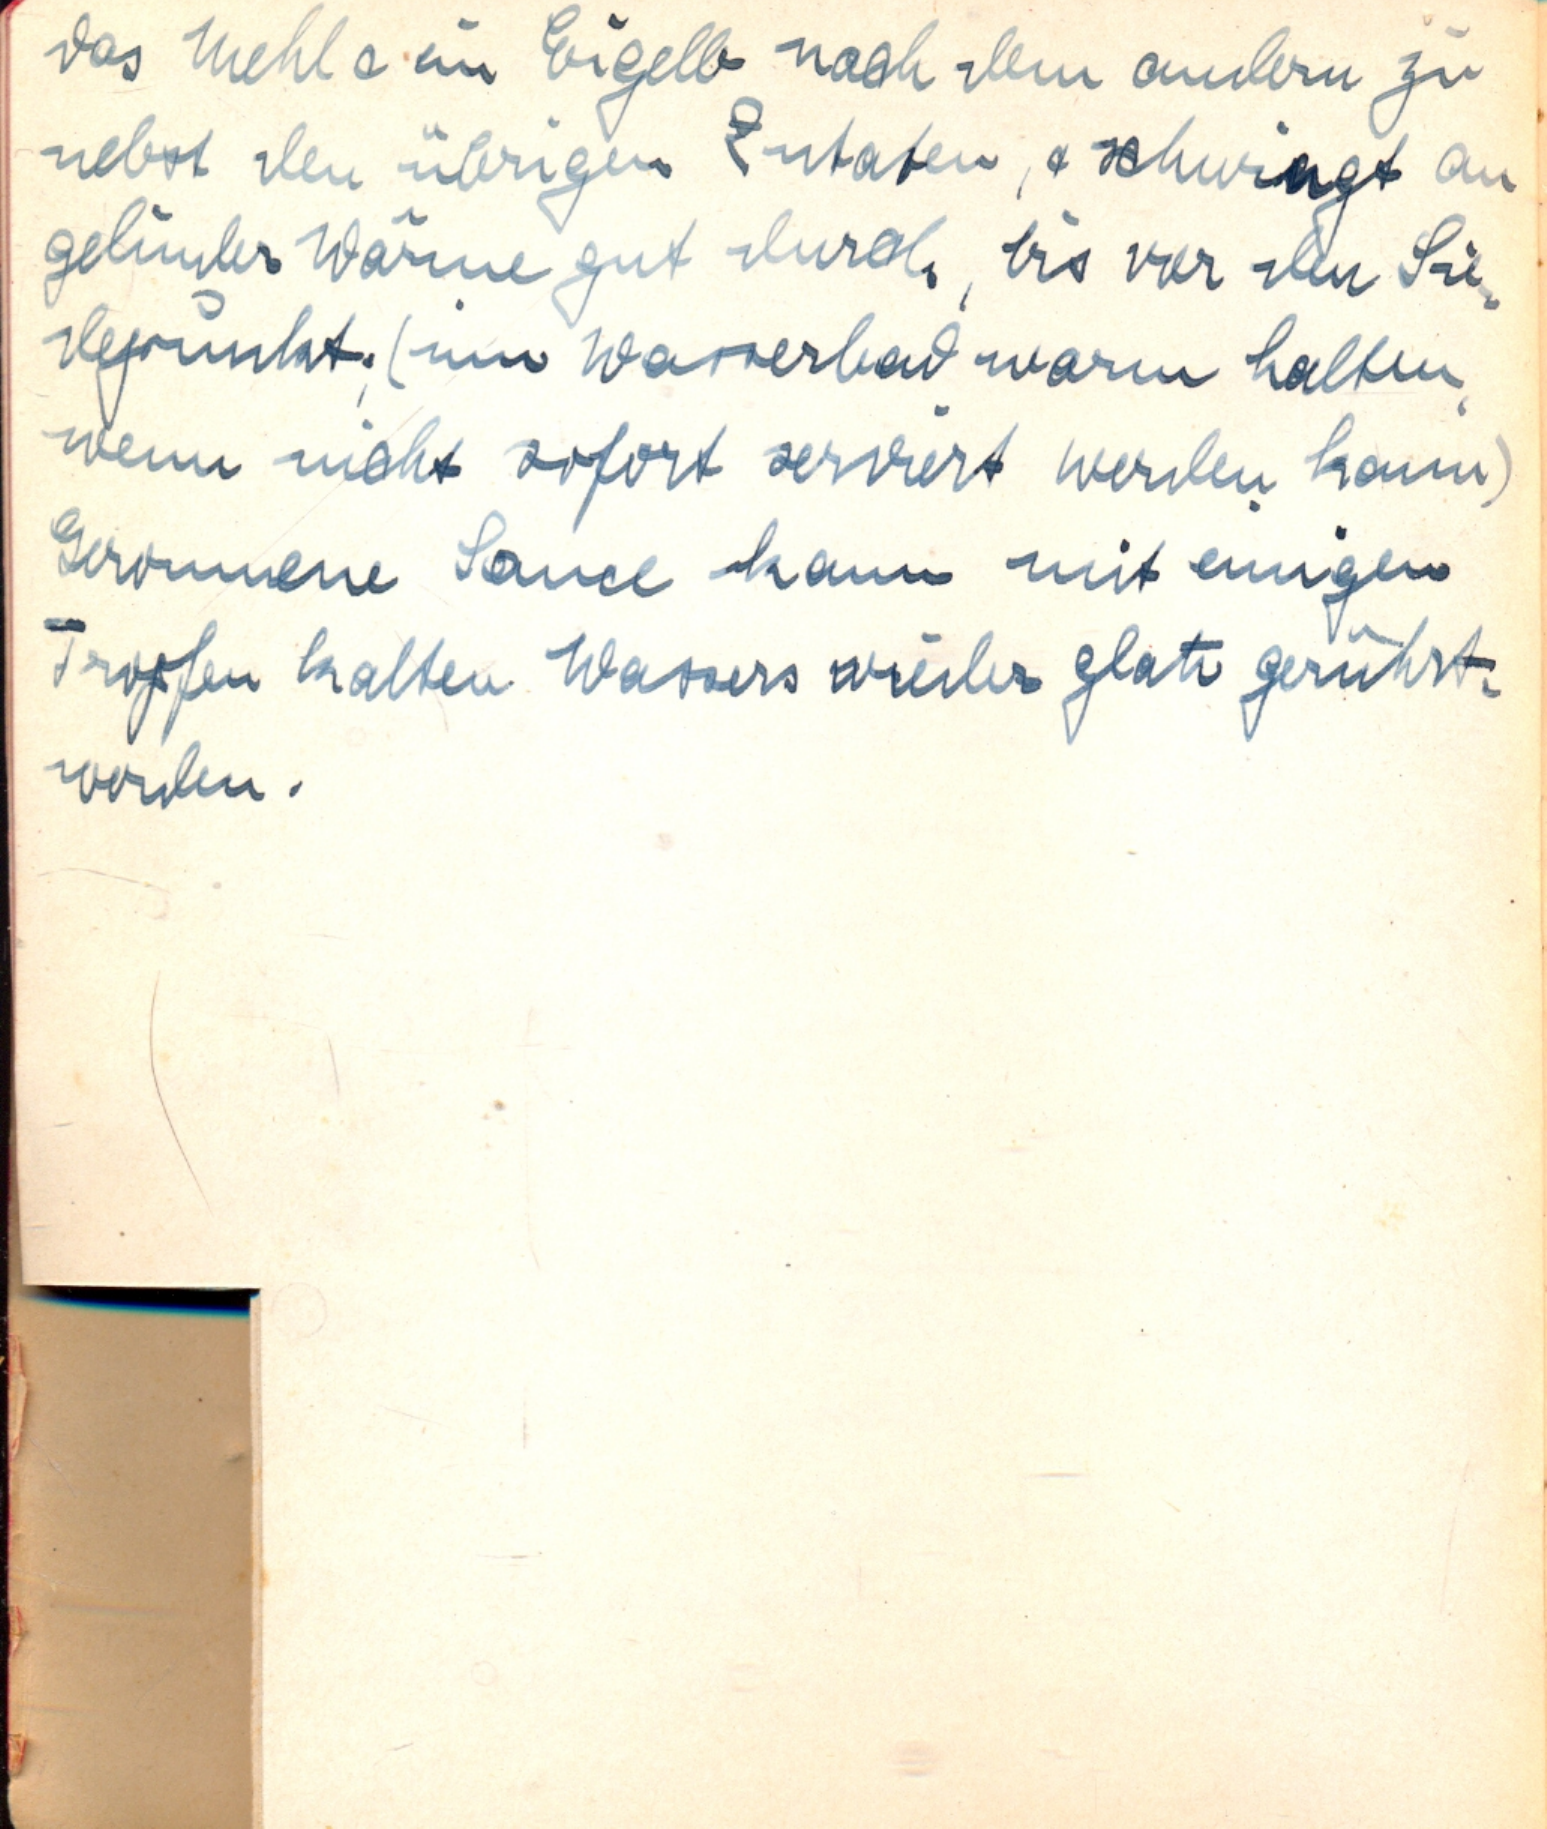 das Mehl & ein Eigelb nach dem andern zu
nebst den übrigen Zutaten, & schwingt an
gelinder Wärme gut durch, bis vor den Sie-
depunkt. (im Wasserbad warm halten,
wenn nicht sofort serviert werden kann)
Geronnene Sauce kann mit einigen
Tropfen kalten Wassers wieder glatt gerührt
werden.